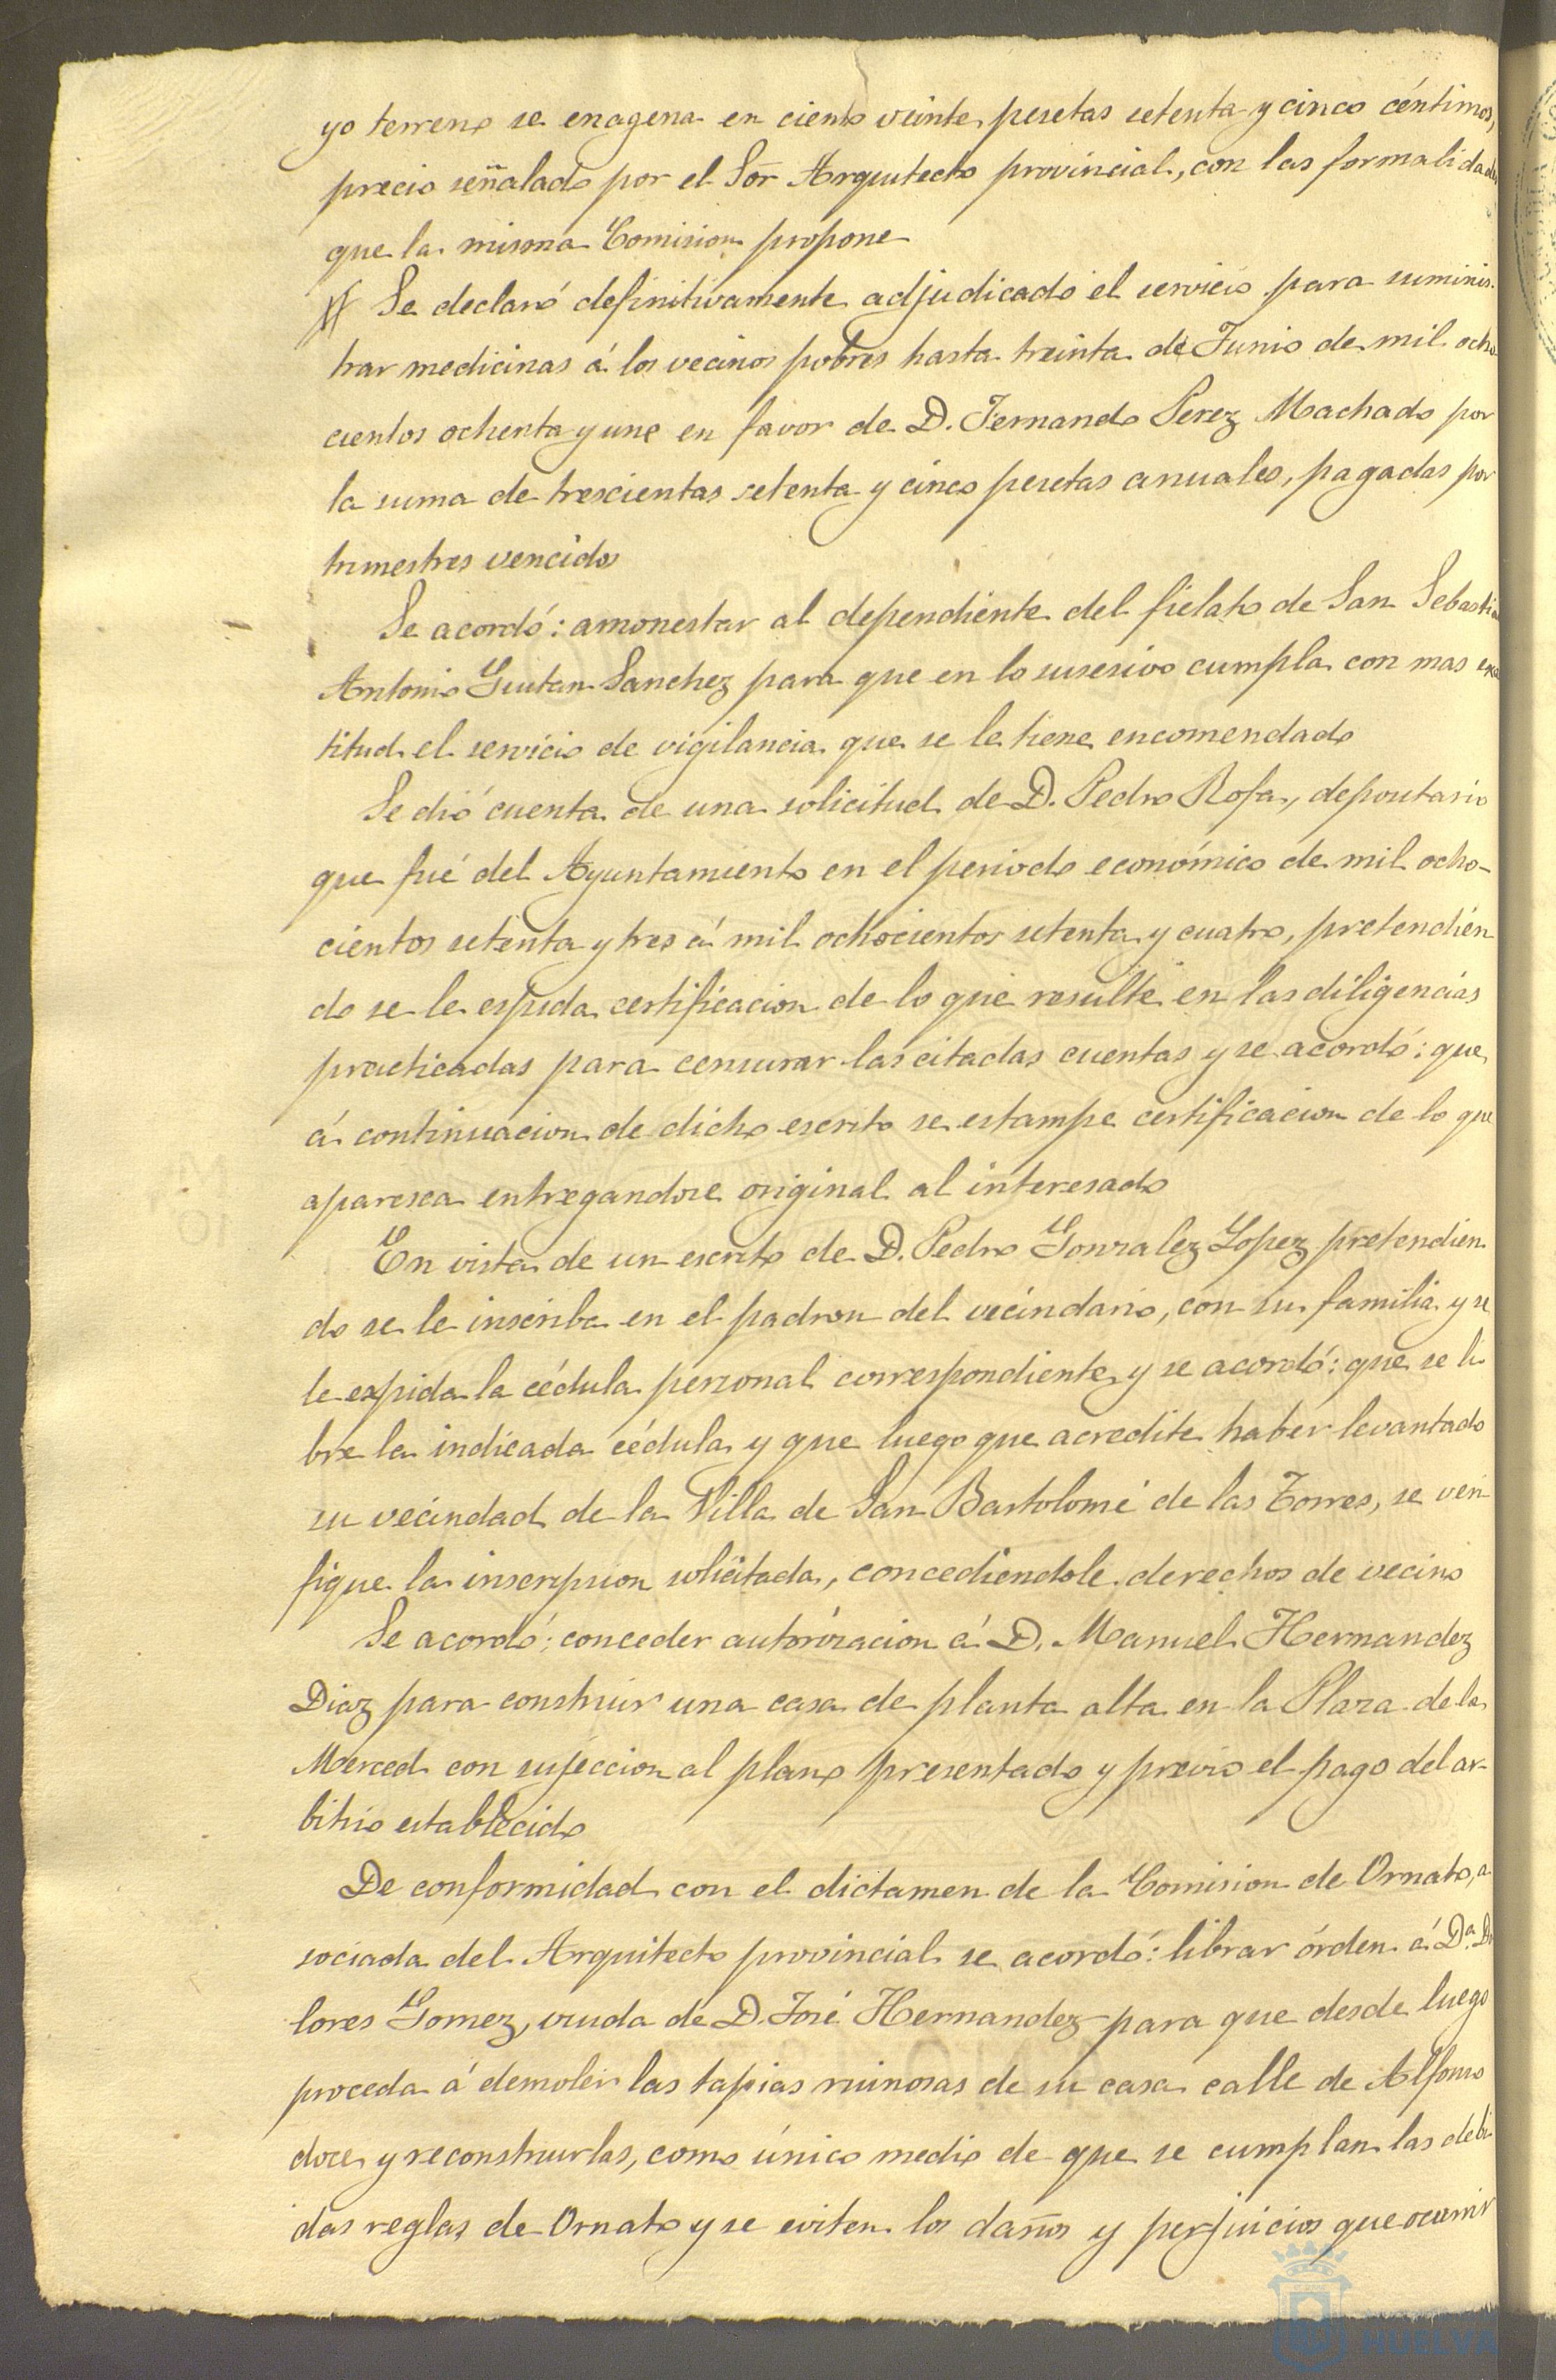 yo terreno se enagena en ciento veinte pesetas setenta y cinco céntimos,
precio señalado por el Sor Arquitecto provincial, con las formalidades
que la misma Comision propone
Se declaró definitivamente adjudicado el servicio para suminis-
trar medicinas á los vecinos pobres hasta treinta de Junio de mil ocho
cientos ochenta y uno en favor de D. Fernando Perez Machado por
la suma de trescientas setenta y cinco pesetas anuales, pagadas por
trimestres vencidos
Se acordó: amonestar al dependiente del fielato de San Sebastian
Antonio Guitan Sanchez para que en lo susesivo cumpla con mas exa
titud el servicio de vigilancia que se le tiene encomendado
Se dió cuenta de una solicitud de D. Pedro Rofa, depositario
que fué del Ayuntamiento en el periodo económico de mil ocho-
cientos setenta y tres á mil ochocientos setenta y cuatro, pretendien
do se le espida certificacion de lo que resulte en las diligencias
practicadas para censurar las citadas cuentas y se acordó: que
á continuacion de dicho escrito se estampe certificacion de lo que
aparesca entregandose original al interesado
En vista de un escrito de D. Pedro Gonzalez Lopez pretendien
do se le inscriba en el padron del vecindario, con su familia y se
le expida la cédula personal correspondiente y se acordó: que se li
bre la indicada cédula y que luego que acredite haber levantado
su vecindad de la Villa de San Bartolomé de las Torres, se veri
fique la inscripsion solicitada, concediendole derechos de vecino
Se acordó: conceder autorizacion á D. Manuel Hernandez
Diaz para construir una casa de planta alta en la Plaza de la
Merced con sujeccion al plano presentado y previo el pago del ar-
bitrio establecido
De conformidad con el dictamen de la Comision de Ornato, a
sociada del Arquitecto provincial se acordó: librar órden á Dª. Do
lores Gomez, viuda de D. José Hernandez para que desde luego
proceda á demoler las tapias ruinosas de su casa calle de Alfonso
doce y reconstruirlas, como único medio de que se cumplan las debi
das reglas de Ornato y se eviten los daños y perjuicios que ocurrir
HUELVA